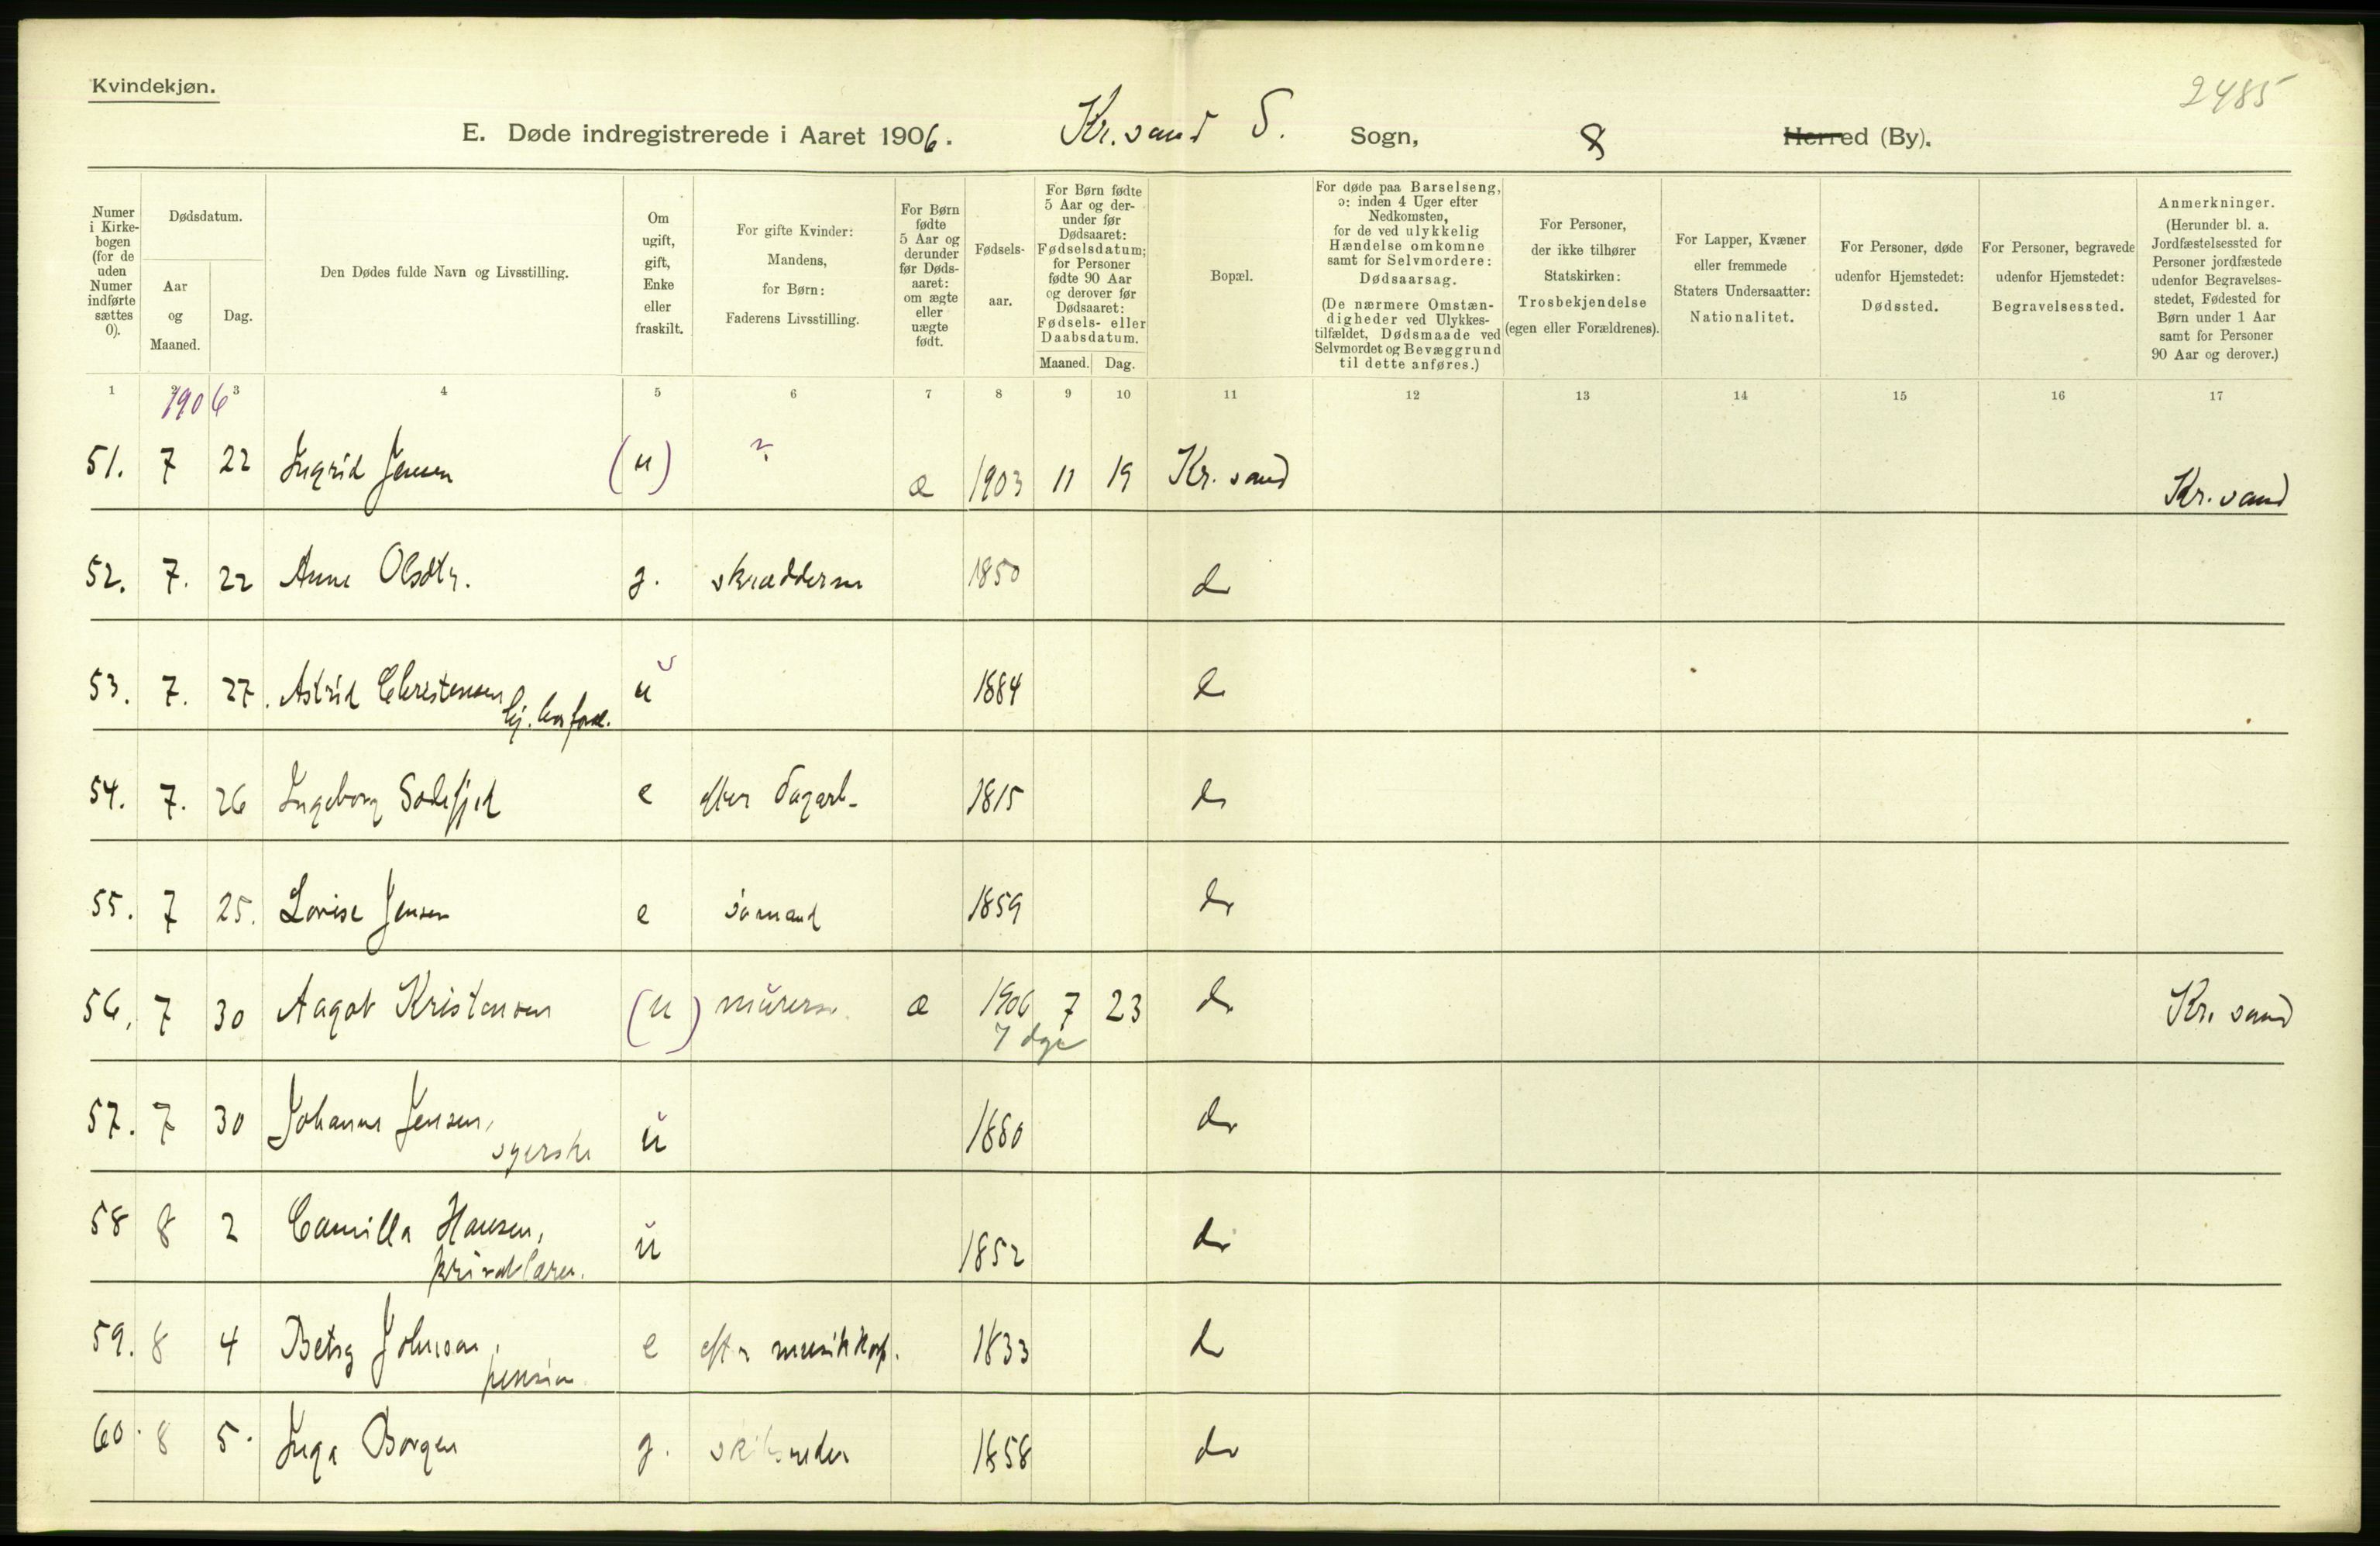 Kvindekjøn.
2485
E. Døde indregistrerede i Aaret 1906. Kr.sand S. Sogn, 8 Herred (By).
Numer i Kirkebogen (for de uden Numer indførte sættes 0).
Dødsdatum.
Aar og Maaned.
Dag.
Den Dødes fulde Navn og Livsstilling.
Om ugift, gift, Enke eller fraskilt.
For gifte Kvinder: Mandens, for Børn: Faderens Livsstilling.
For Børn fødte 5 Aar og derunder før Dødsaaret: om ægte eller uægte født.
Fødselsaar.
For Børn fødte 5 Aar og derunder før Dødsaaret: Fødselsdatum; for Personer fødte 90 Aar og derover før Dødsaaret: Fødsels- eller Daabsdatum.
Maaned. Dag.
Bopæl.
For døde paa Barselseng, ɔ: inden 4 Uger efter Nedkomsten, for de ved ulykkelig Hændelse omkomne samt for Selvmordere: Dødsaarsag.
(De nærmere Omstændigheder ved Ulykkestilfældet, Dødsmaade ved Selvmordet og Bevæggrund til dette anføres.)
For Personer, der ikke tilhører Statskirken: Trosbekjendelse (egen eller Forældrenes).
For Lapper, Kvæner eller fremmede Staters Undersaatter: Nationalitet.
For Personer, døde udenfor Hjemstedet: Dødssted.
For Personer, begravede udenfor Hjemstedet: Begravelsessted.
Anmerkninger.
(Herunder bl. a. Jordfæstelsessted for Personer jordfæstede udenfor Begravelsesstedet, Fødested for Børn under 1 Aar samt for Personer 90 Aar og derover.)
1 2 3 4 5 6 7 8 9 10 11 12 13 14 15 16 17
1906
51. 7 22 Ingrid Jensen (u) ? æ 1903 11 19 Kr. sand Kr. sand
52. 7. 22 Anne Olsdtr. g. skræddersv 1850 do
53. 7. 27. Astrid Christensen u 1884 do
hj. hos foræl.
54. 7. 26 Ingeborg e efter dagarb. 1815 do
55. 7 25. Lovise Jensen e sømand 1859 do
56. 7 30 Aagot Kristensen (u) murersv. æ 1906 7 23 do Kr. sand
7 dge
57. 7 30 Johanne Jensen, u 1880 do
syerske
58 8 2 Camilla Hansen, u 1852 do
privatlærer.
59. 8 4 Betsy Johnson, e eft. musikkorp. 1833 do
pension
60. 8 5. Inga Borgen g. skibsreder 1858 do